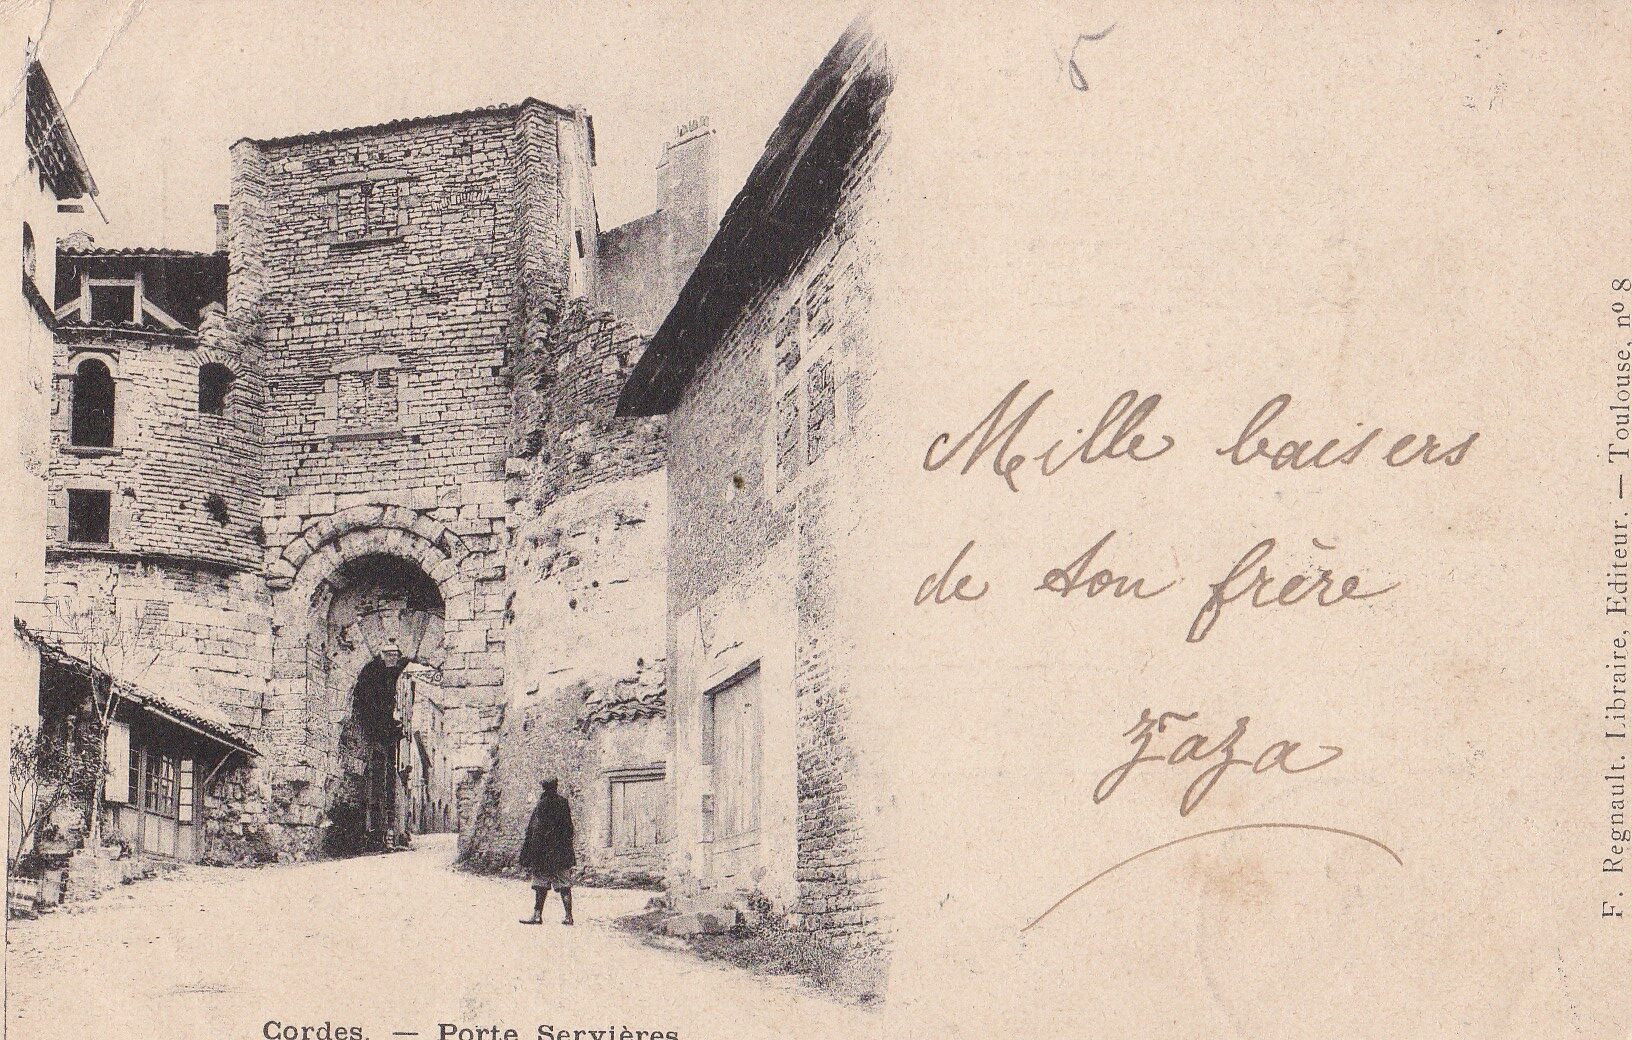 5
Mille baisers
de ton frère
Zaza
Cordes. — Porte Servières
F. Regnault. Libraire, Editeur. — Toulouse, nº 8